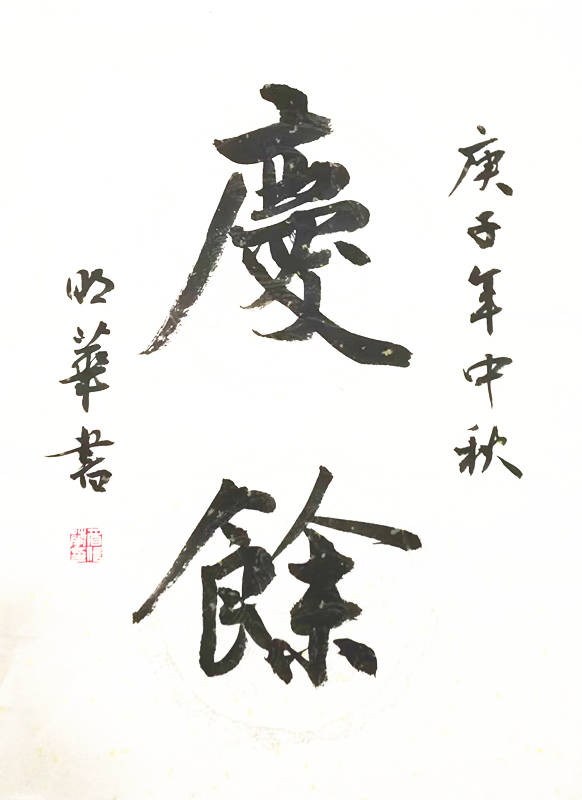 庚子年中秋
慶餘
明華書